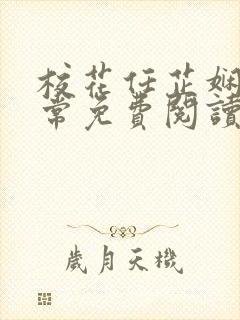 校花任芷娴
常免費閱讀
歲月天機